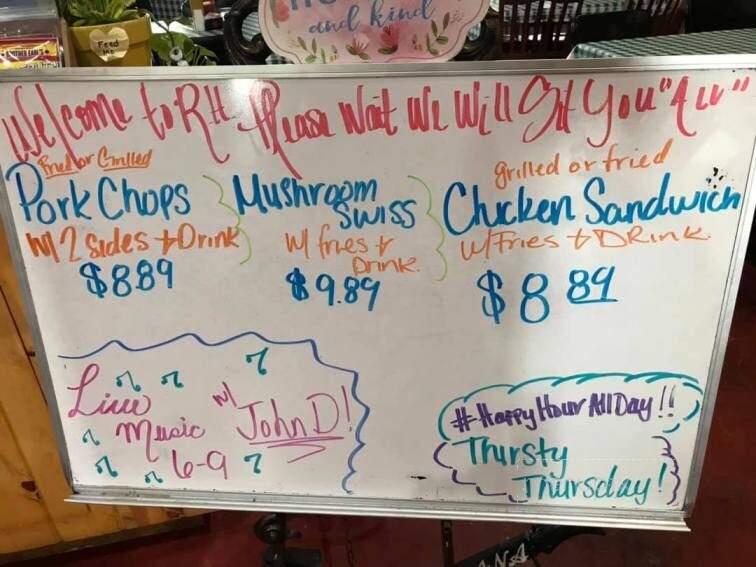 and kind
Feed
Me
Welcome to RH Please Wait We Will Sit You "All"
Fried or Grilled
Pork Chops
w/ 2 sides + Drink
$8.89
Mushroom
Swiss
w/ fries +
Drink.
$9.89
grilled or fried
Chicken Sandwich
w/ Fries + DRink.
$8 89
Live
Music w/ John D!
6-9
# Happy Hour All Day!!
Thirsty
Thursday!